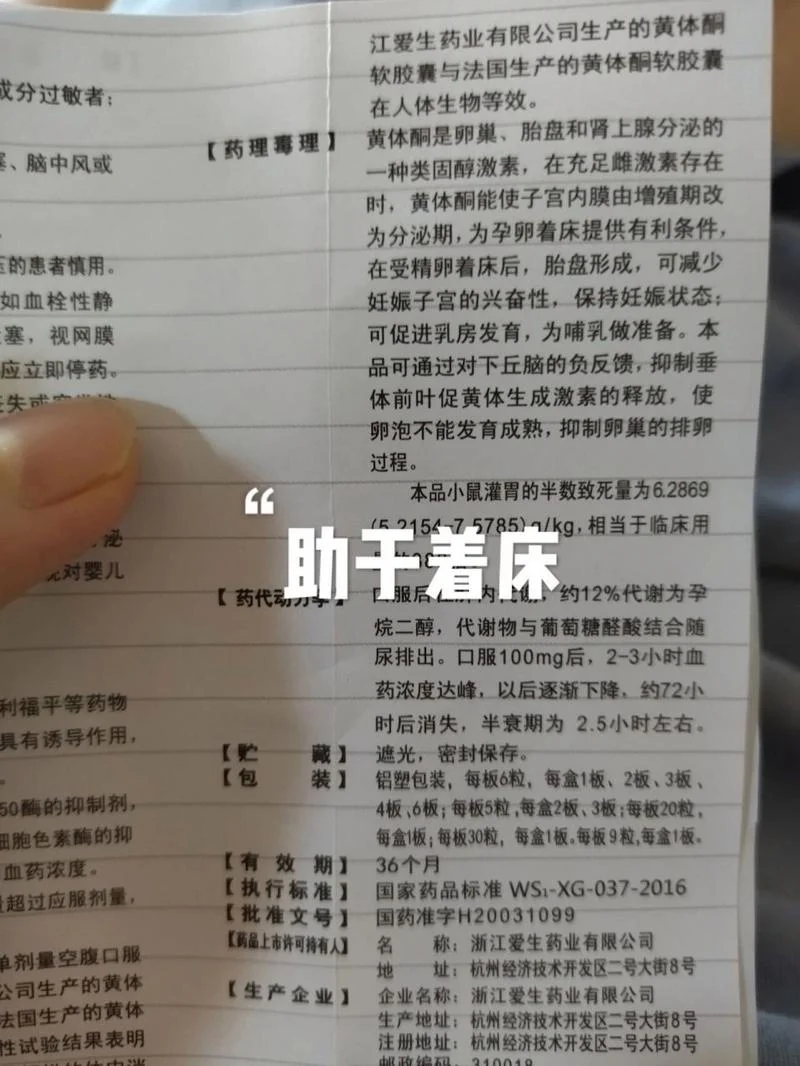 成分过敏者；
、脑中风或
压的患者慎用。
如血栓性静
塞，视网膜
应立即停药。
泌
对婴儿
利福平等药物
具有诱导作用，
50酶的抑制剂，
细胞色素酶的抑
血药浓度。
量超过应服剂量，
单剂量空腹口服
公司生产的黄体
法国生产的黄体
性试验结果表明
江爱生药业有限公司生产的黄体酮
软胶囊与法国生产的黄体酮软胶囊
在人体生物等效。
【药理毒理】 黄体酮是卵巢、胎盘和肾上腺分泌的
一种类固醇激素，在充足雌激素存在
时，黄体酮能使子宫内膜由增殖期改
为分泌期，为孕卵着床提供有利条件，
在受精卵着床后，胎盘形成，可减少
妊娠子宫的兴奋性，保持妊娠状态；
可促进乳房发育，为哺乳做准备。本
品可通过对下丘脑的负反馈，抑制垂
体前叶促黄体生成激素的释放，使
卵泡不能发育成熟，抑制卵巢的排卵
过程。
本品小鼠灌胃的半数致死量为6.2869
(5.2154-7.5785)g/kg，相当于临床用
“
助于着床
【药代动力学】 口服后在肝内代谢，约12%代谢为孕
烷二醇，代谢物与葡萄糖醛酸结合随
尿排出。口服100mg后，2-3小时血
药浓度达峰，以后逐渐下降，约72小
时后消失，半衰期为 2.5小时左右。
【贮 藏】 遮光，密封保存。
【包 装】 铝塑包装，每板6粒，每盒1板、2板、3板、
4板、6板；每板5粒，每盒2板、3板；每板20粒，
每盒1板；每板30粒，每盒1板。每板9粒，每盒1板。
【有 效 期】 36个月
【执行标准】 国家药品标准 WS₁-XG-037-2016
【批准文号】 国药准字H20031099
【药品上市许可持有人】 名 称：浙江爱生药业有限公司
地 址：杭州经济技术开发区二号大街8号
【生产企业】 企业名称：浙江爱生药业有限公司
生产地址：杭州经济技术开发区二号大街8号
注册地址：杭州经济技术开发区二号大街8号
邮政编码：310018